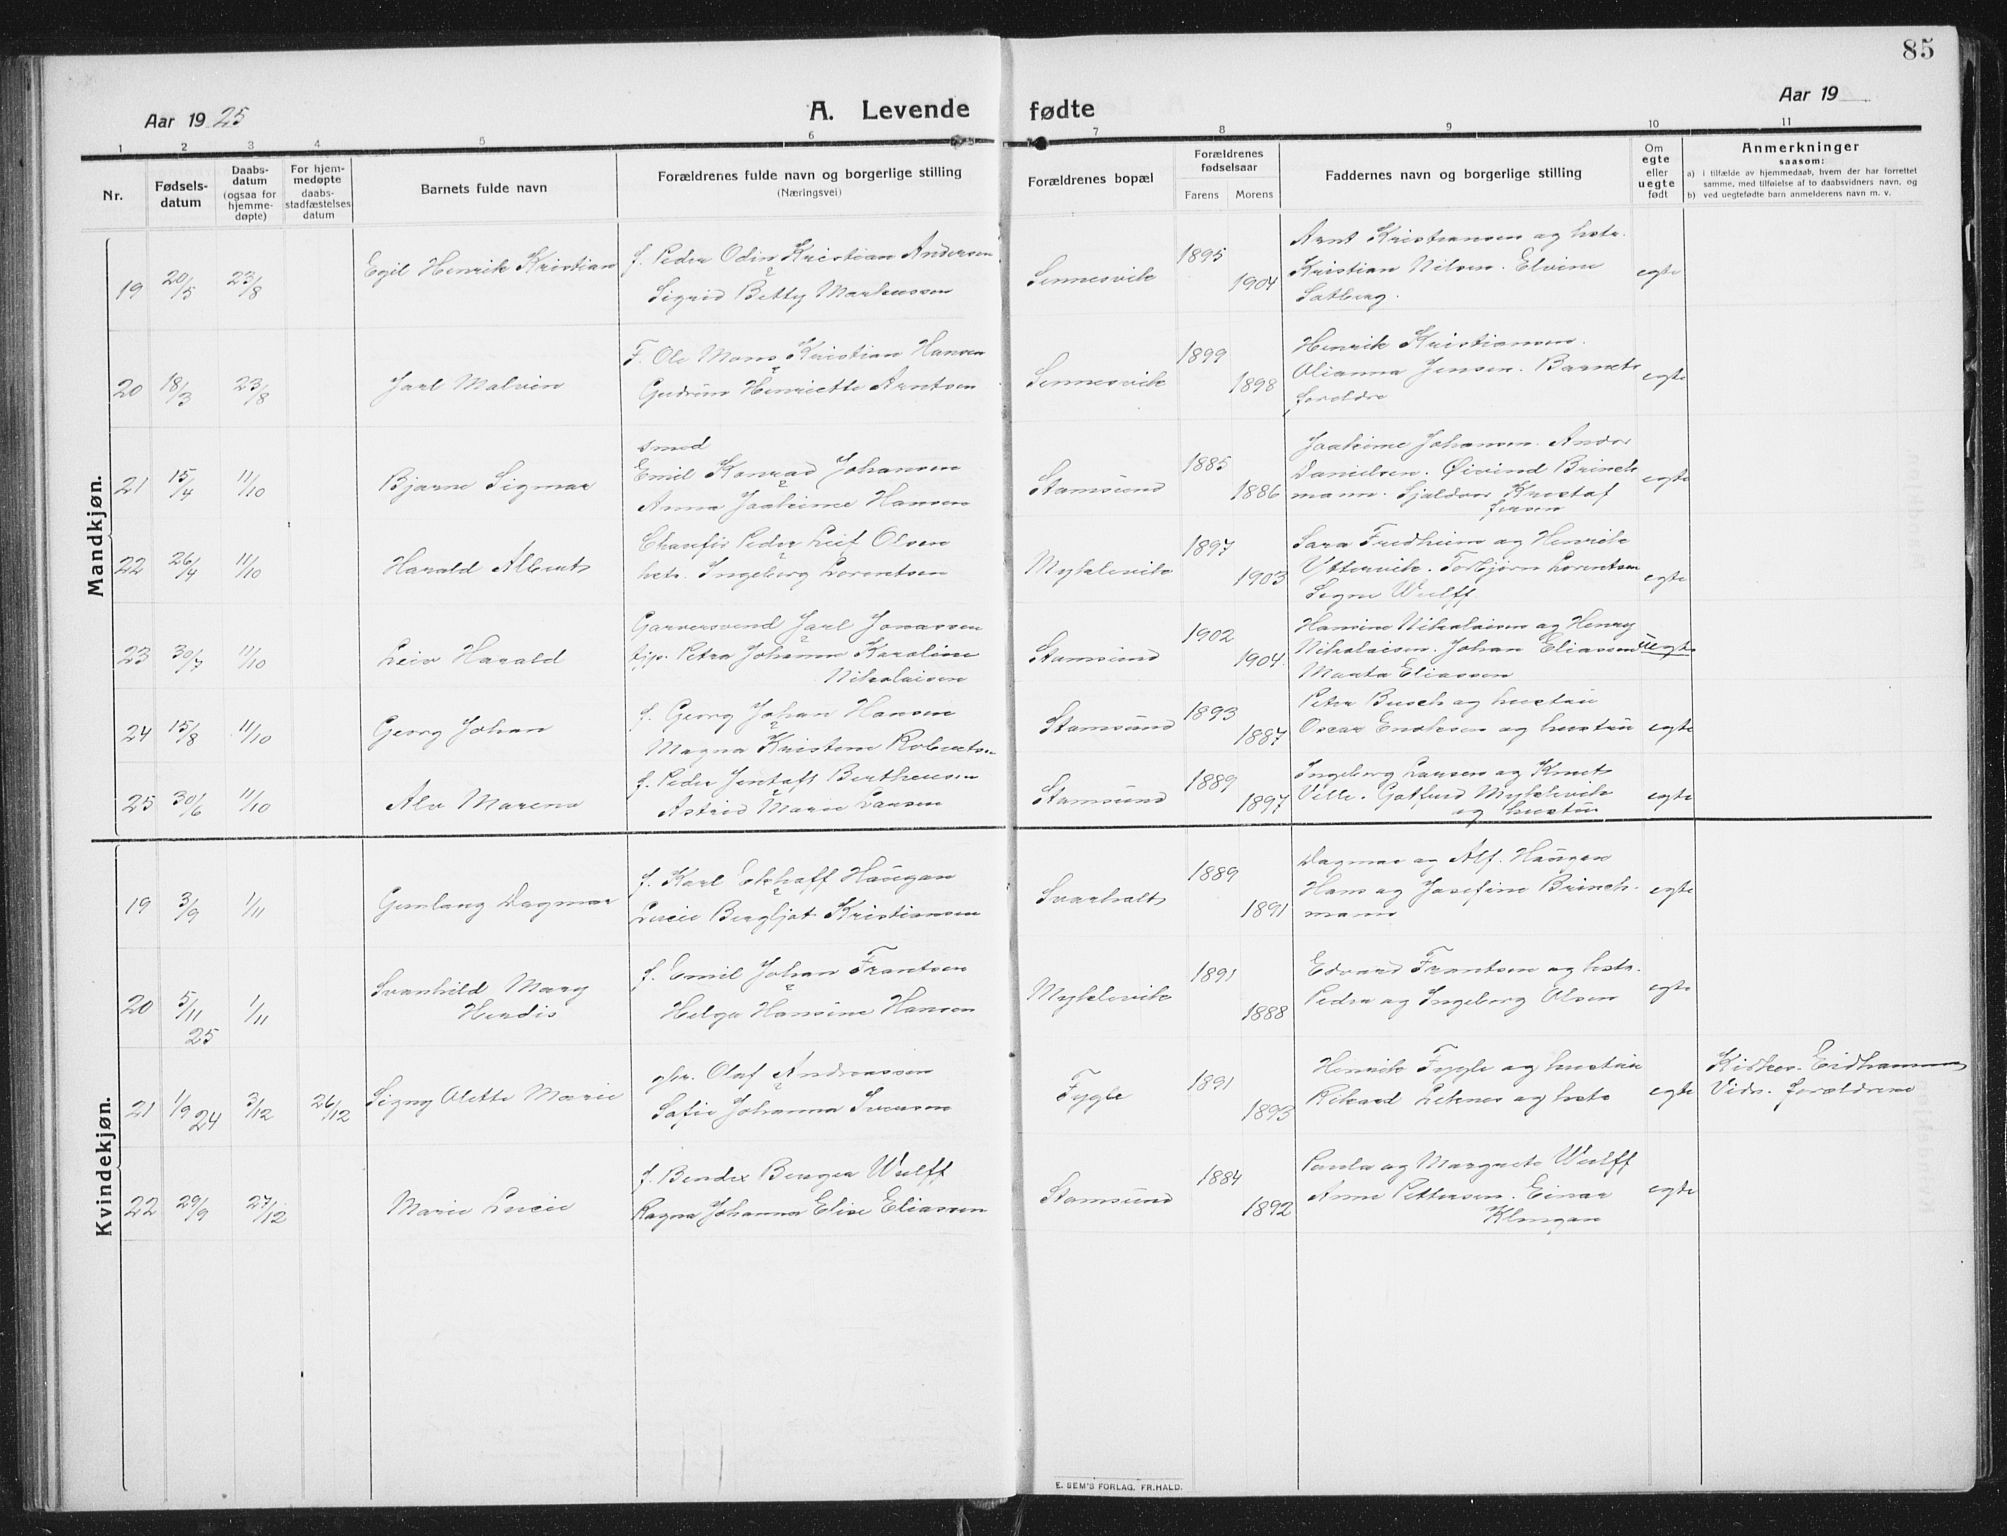 85
Aar 1925
A. Levende fødte
Aar 19
1 2 3 4 5 6 7 8 9 10 11
Nr.
Fødsels-
datum
Daabs-
datum
(ogsaa for
hjemme-
døpte)
For hjem-
medøpte
daabs-
stadfæstelses
datum
Barnets fulde navn
Forældrenes fulde navn og borgerlige stilling
(Næringsvei)
Forældrenes bopæl
Forældrenes
fødselsaar
Farens Morens
Faddernes navn og borgerlige stilling
Om
egte
eller
uegte
født
Anmerkninger
saasom:
a) i tilfælde av hjemmedaab, hvem der har forrettet
samme, med tilføielse af to daabsvidners navn, og
b) ved uegtefødte barn anmelderens navn m. v.
Mandkjøn.
19 20/5 23/8 Egil Henrik Kristian
f. Peder Odin Kristian Andersen
Sigrid Betty Markussen
Sennesvik 1895 1904
Arnt Kristiansen og hstr.
Kristian Nilsen. Elvine
Satberg.
egte
20 18/3 23/8 Jarl Malvin
F. Ole Mons Kristian Hansen
Gudrun Henriette Arntsen
Sennesvik 1899 1898
Henrik Kristiansen.
Olianna Jensen. Barnets
foreldre
egte
21 15/4 11/10 Bjarne Sigmar
smed
Emil Konrad Johansen
Anna Joakime Hansen
Stamsund 1885 1886
Joakime Johansen. Andor
Danielsen. Øivind Brinck
mann. Sjaldvor Kristof
fersen
egte
22 26/4 11/10 Harald Albert
Chauffør Peder Leif Olsen
hstr. Ingeborg Lorentsen
Myklevik 1897 1903
Sara Fredheim og Henrik
Yttervik. Torbjørn Lorentsen
Signe Wulff
egte
23 30/7 11/10 Leiv Harald
Garversvend Jarl Jonassen
tjp. Petra Johanna Karoline
Nikolaisen
Stamsund 1902 1904
Hansine Nikolaisen og Henry
Nikolaisen. Johan Eliassen
Marta Eliassen
uegte
24 15/8 11/10 Georg Johan
f. Georg Johan Hansen
Magna Kristine Robertsen
Stamsund 1893 1887
Peter Busch og hustru
Oscar Enoksen og hustru
egte
25 30/6 11/10 Alv Mareno
f. Peder Jentoft Bertheussen
Astrid Marie Larsen
Stamsund 1889 1897
Ingeborg Larsen og Knut
Ville. Gotfred Myklevik
og hustru
egte
Kvindekjøn.
19 3/9 1/11 Gunlaug Dagmar
f. Karl Eckhoff Haugan
Lucie Bergljot Kristiansen
Svarholt 1889 1891
Dagmar og Alf. Haugan
Hans og Josefine Brinch-
mann
egte
20 5/11 25 1/11 Svanhild Mary
Herdis
f. Emil Johan Frantsen
Helga Hansine Hansen
Myklevik 1891 1888
Edvard Frantsen og hstr.
Pedra og Ingeborg Olsen
egte
21 1/9 24 3/12 26/12 Signy Olette Marie
gbr. Olaf Andreassen
Sofie Johanna Svensen
Fygle 1891 1893
Henrik Fygle og hustru
Rikard Leknes og hstr
egte
Kirkes. Eidhammer
Vidn. foreldrene
22 29/9 27/12 Marie Lucie
f. Bendix Berger Wulff
Ragna Johanna Elise Eliassen
Stamsund 1884 1892
Paula og Margrete Wulff
Anna Pettersen. Einar
Klungan
egte
E. SEM'S FORLAG, FR.HALD.